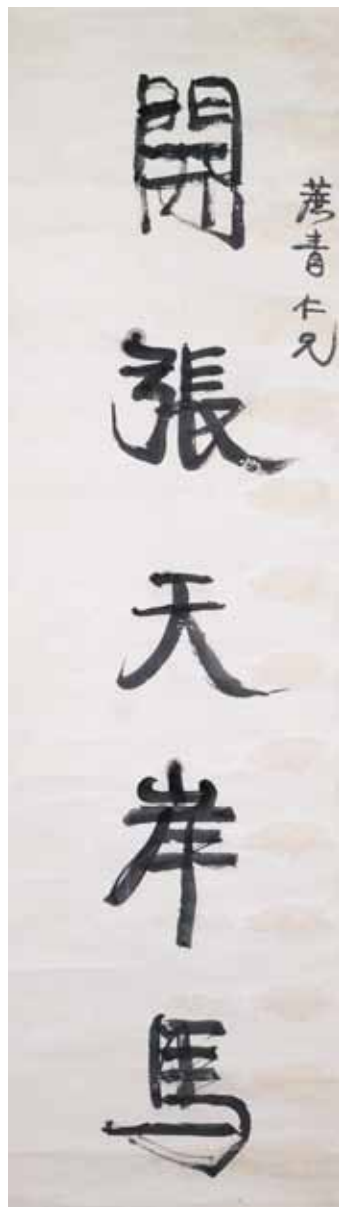 蔗青仁兄
開張天岸馬